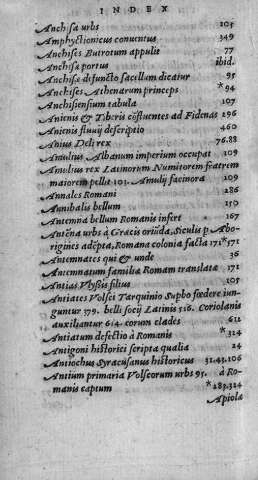 INDEX
Anchisa urbs 105
Amphyctionicus conuentus 349
Anchises Butrotum appulit 77
Anchisa portus ibid.
Anchisæ defuncto sacellum dicatur 95
Anchises Athenarum princeps *94
Anchisiensium tabula 107
Anienis & Tiberis cōfluentes ad Fidenas 196
Anienis fluuij descriptio 460
Anius Deli rex 76.88
Amulius Albanum imperium occupat 109
Amulius rex Latinorum Numitorem fratrem
maiorem pellit 101. Amulij facinora 109
Annales Romani 286
Annibalis bellum 150
Antemna bellum Romanis infert 167
Antēna urbs à Græcis oriūda, Siculis p Abo-
rigines adēpta, Romana colonia facta 171*571
Antemnates qui & unde 36
Antemnatum familia Romam translata 171
Antias Vlyßis filius 105
Antiates Volsci Tarquinio Supbo fœdere iun-
guntur 379. belli socij Latinis 516. Coriolanis
auxiliantur 614. eorum clades 612
Antiatum defectio à Romanis *324
Antigoni historici scripta qualia 24
Antiochus Syracusanus historicus 31.43.106
Antium primaria Volscorum urbs 95. à Ro-
manis captum *283.324
Apiola